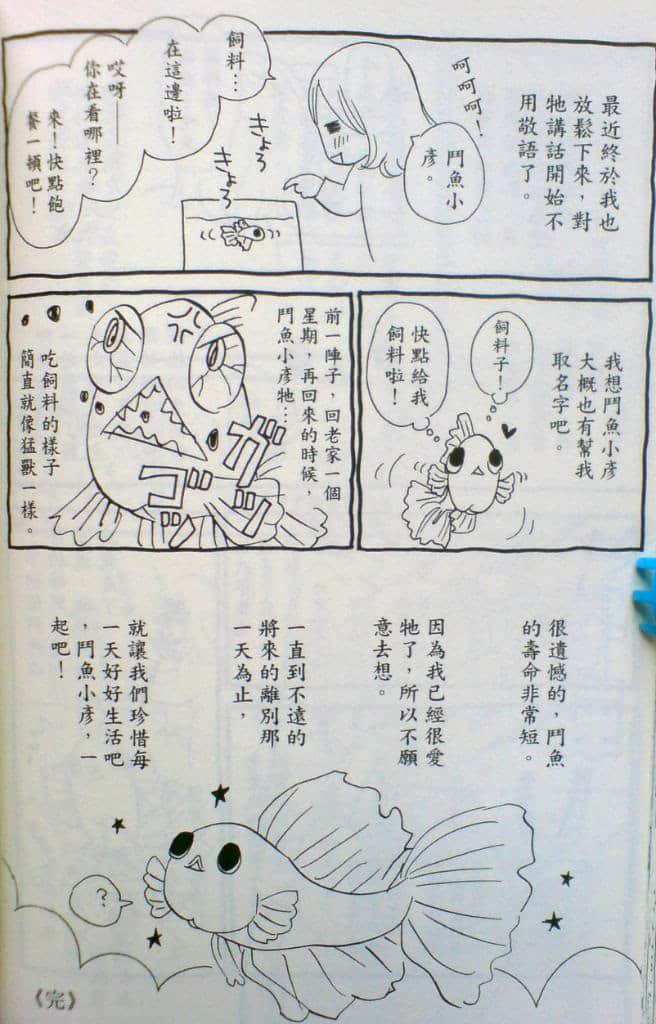 最近終於我也
放鬆下來，對
牠講話開始不
用敬語了。
呵呵呵！
鬥魚小
彥。
飼料…
在這邊啦！
哎呀——
你在看哪裡？
來！快點飽
餐一頓吧！
きょろ
きょろ
我想鬥魚小彥
大概也有幫我
取名字吧。
飼料子！
快點給我
飼料啦！
前一陣子，回老家一個
星期，再回來的時候，
鬥魚小彥牠…
ガッ
ゴッ
吃飼料的樣子
簡直就像猛獸一樣。
很遺憾的，鬥魚
的壽命非常短。
因為我已經很愛
牠了，所以不願
意去想。
一直到不遠的
將來的離別那
一天為止，
就讓我們珍惜每
一天好好生活吧
，鬥魚小彥，一
起吧！
？
《完》